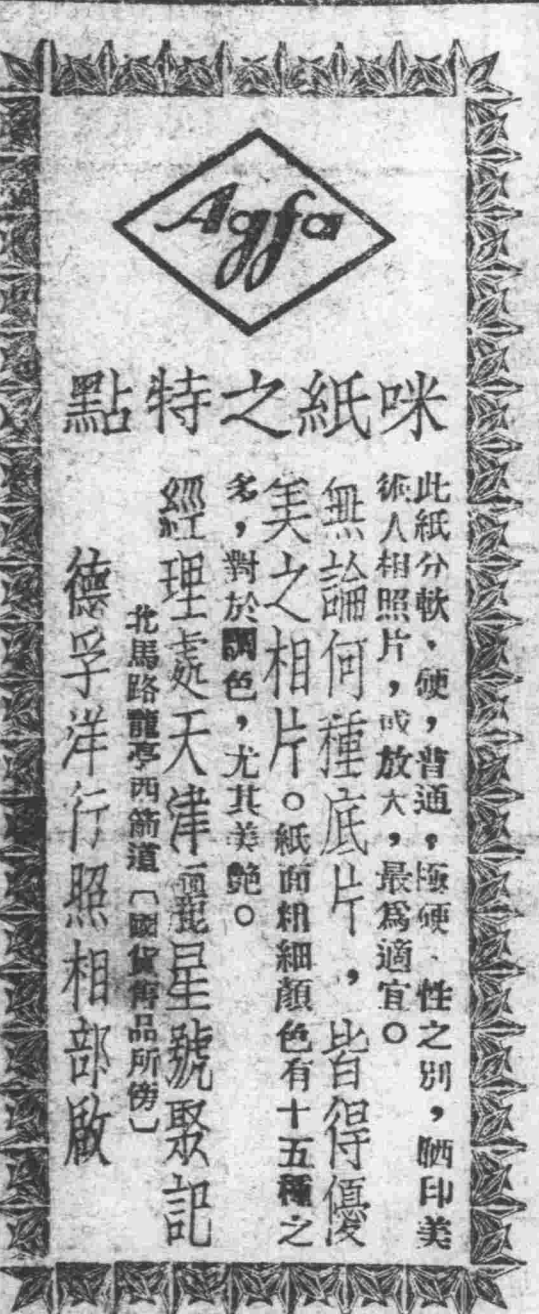 Agfa
咪紙之特點
此紙分軟、硬,普通,極硬、性之別,晒印美
術人相照片,或放大,最爲適宜。
無論何種底片,皆得優
美之相片。紙面粗細顏色有十五種之
多,對於調色,尤其美艷。
經理處天津靈星號聚記
北馬路龍亭西箭道〔國貨售品所傍〕
德孚洋行照相部啟